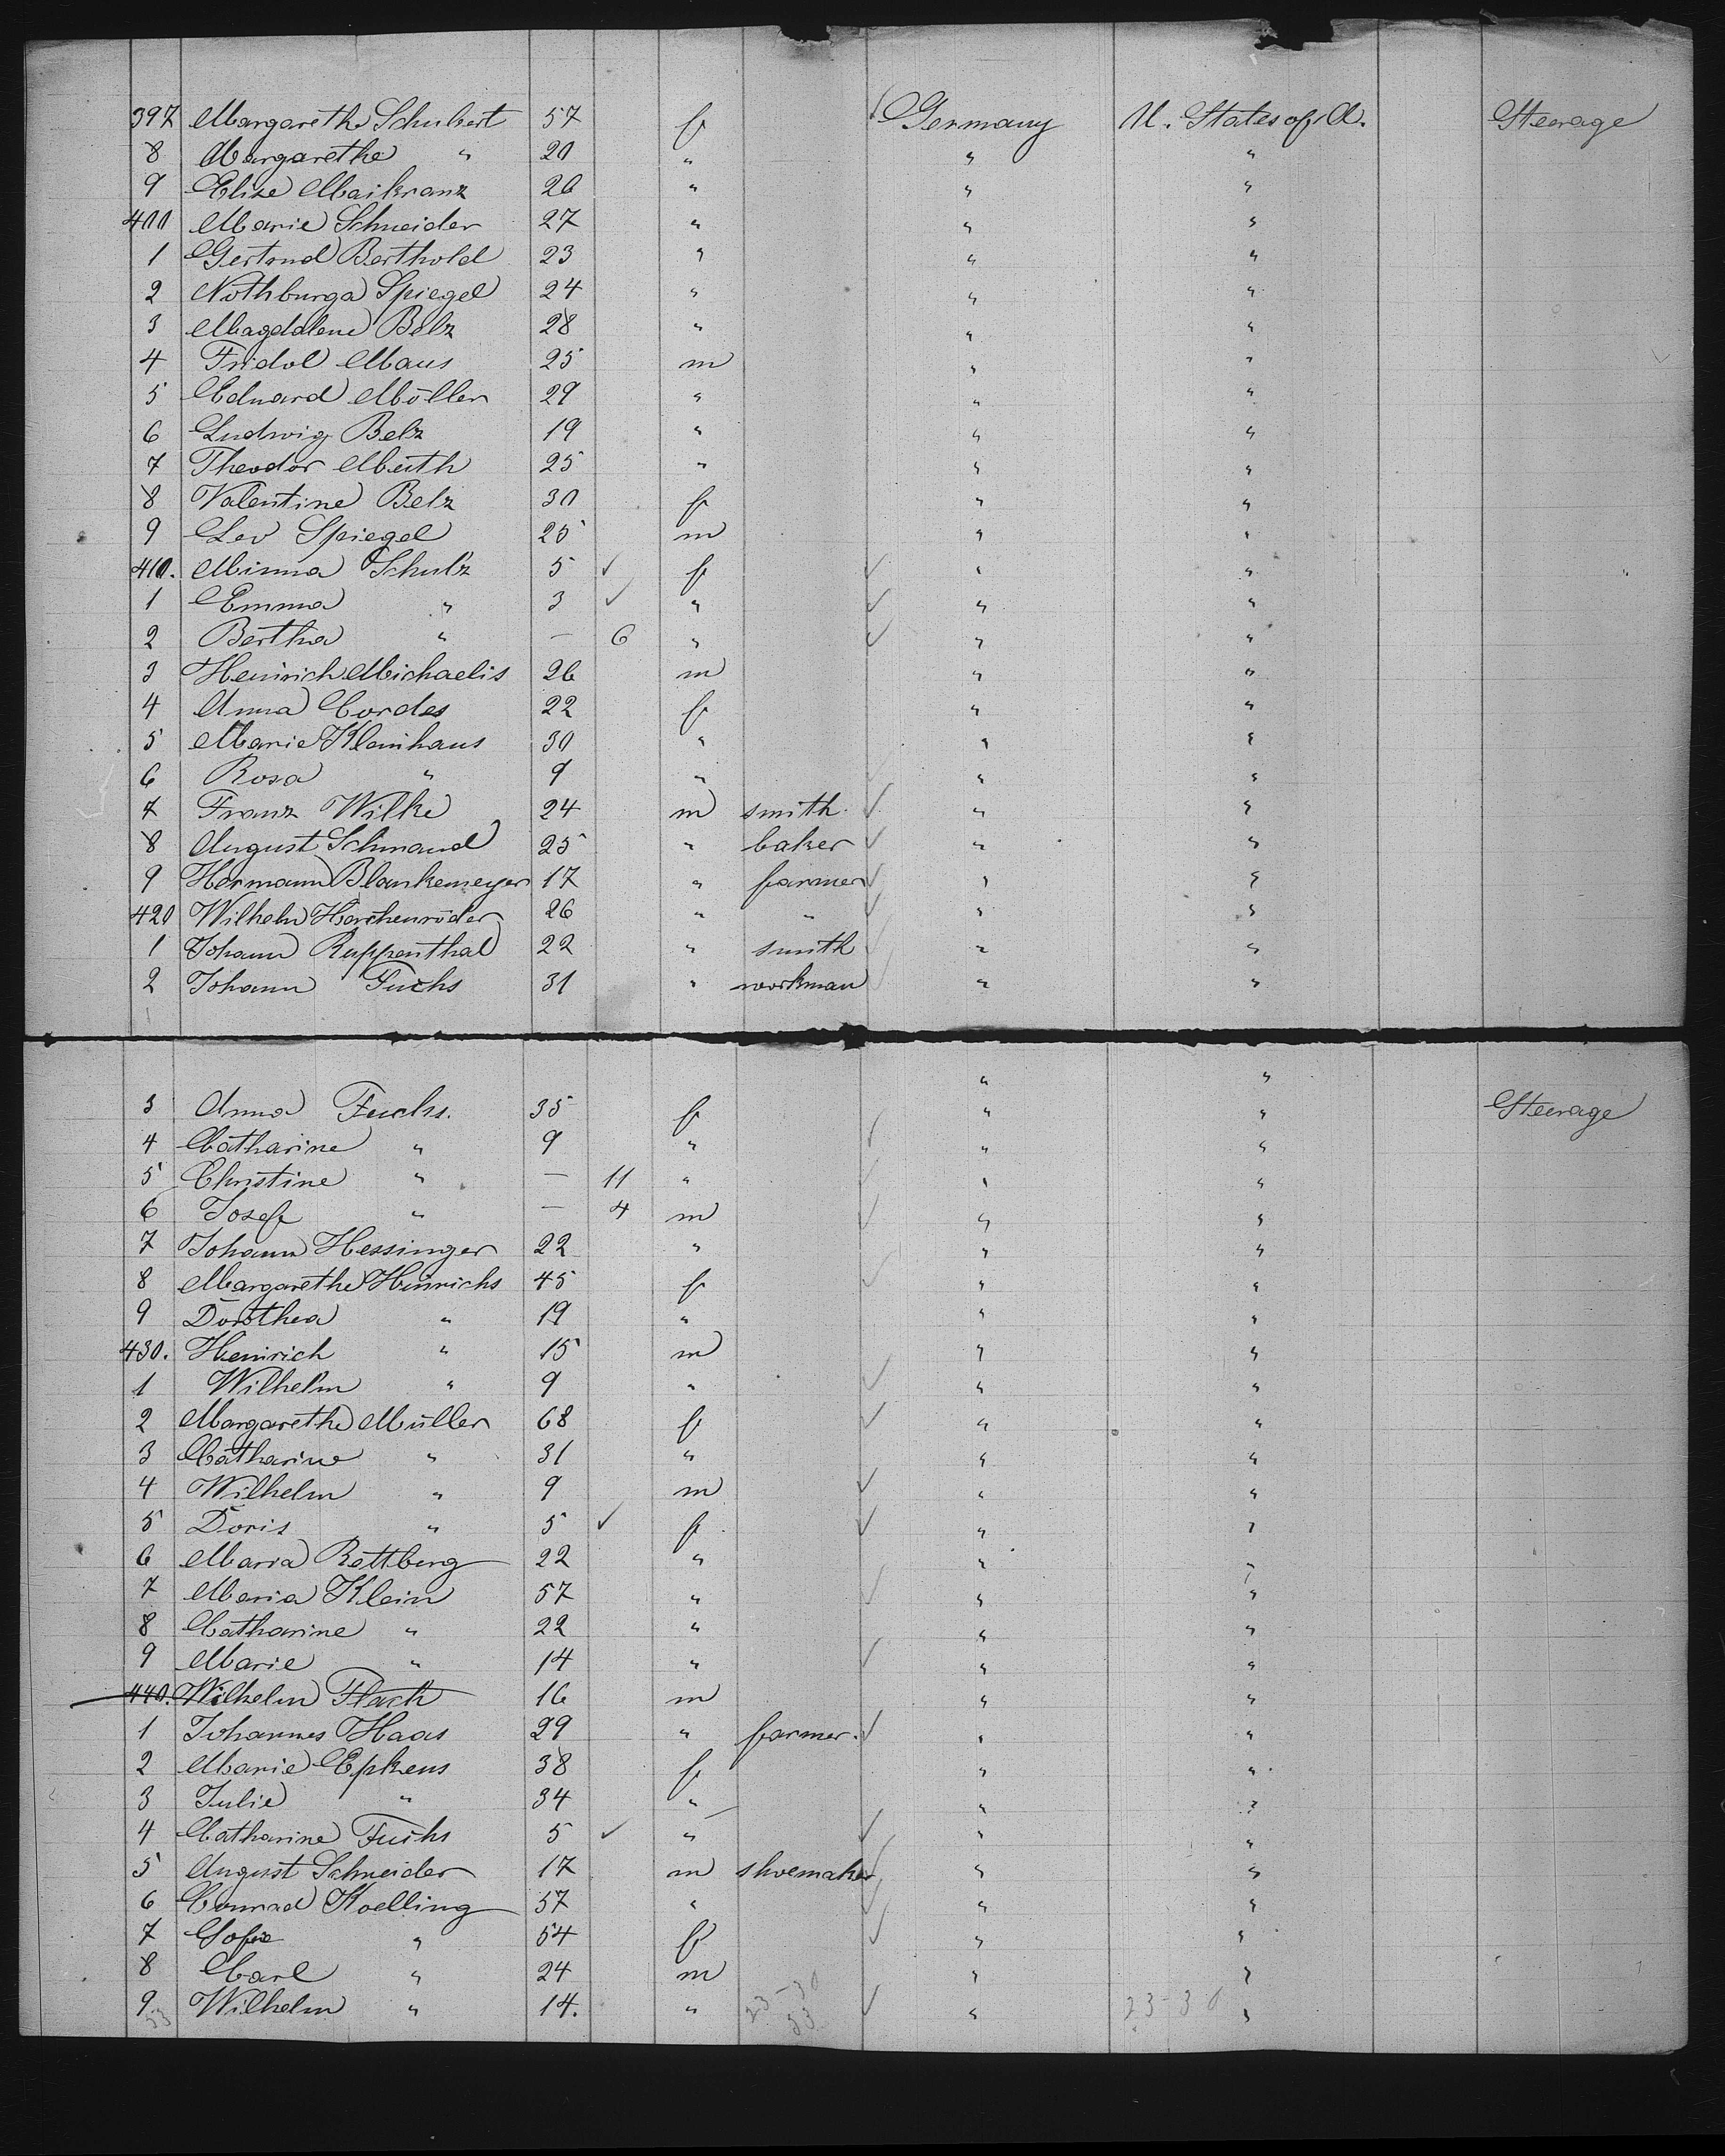 397 Margareth Schubert 57 f Germany U. States of A. Steerage
8 Margarethe " 20 " " "
9 Elise Maikranz 26 " " "
400 Marie Schneider 27 " " "
1 Gertrud Berthold 23 " " "
2 Nothburga Spiegel 24 " " "
3 Magdalena Belz 28 " " "
4 Fridol Maus 25 m " "
5 Eduard Möller 29 " " "
6 Ludwig Belz 19 " " "
7 Theodor Muth 25 " " "
8 Valentine Belz 30 f " "
9 Leo Spiegel 25 m " "
410. Minna Schulz 5 ✓ f ✓ " "
1 Emma " 3 ✓ " ✓ " "
2 Bertha " — 6 " ✓ " "
3 Heinrich Michaelis 26 m " "
4 Anna Cordes 22 f " "
5 Marie Kleinhaus 30 " " "
6 Rosa " 9 " ✓ " "
7 Franz Wilke 24 m smith. ✓ " "
8 August Schmand 25 " baker ✓ " "
9 Hermann Blankemeyer 17 " farmer ✓ " "
420 Wilhelm Herchenröder 26 " " ✓ " "
1 Johann Ruppenthal 22 " smith ✓ " "
2 Johann Fuchs 31 " workman ✓ " "
" "
3 Anna Fuchs. 35 f " " Steerage
4 Catharine " 9 " ✓ " "
5 Christine " — 11 " ✓ " "
6 Josef " — 4 m ✓ " "
7 Johann Hessinger 22 " " "
8 Margarethe Hinrichs 45 f ✓ " "
9 Dorothea " 19 " " "
430. Heinrich " 15 m " "
1 Wilhelm " 9 " ✓ " "
2 Margarethe Müller 68 f ✓ " "
3 Catharine " 31 " " "
4 Wilhelm " 9 m ✓ " "
5 Doris " 5 ✓ f ✓ " "
6 Maria Rettberg 22 " " "
7 Maria Klein 57 " ✓ " "
8 Catharine " 22 " " "
9 Marie " 14 " ✓ " "
440. Wilhelm Flach 16 m " "
1 Johannes Haas 29 " farmer. ✓ " "
2 Marie Epkens 38 f " "
3 Julie " 34 " " "
4 Catharine Fuchs 5 ✓ " ✓ " "
5 August Schneider 17 m shoemaker ✓ " "
6 Conrad Koelling 57 " ✓ " "
7 Sofie " 54 f ✓ " "
8 Carl " 24 m " "
9 Wilhelm " 14. " 23-30 ✓ " 23-30 "
53 53